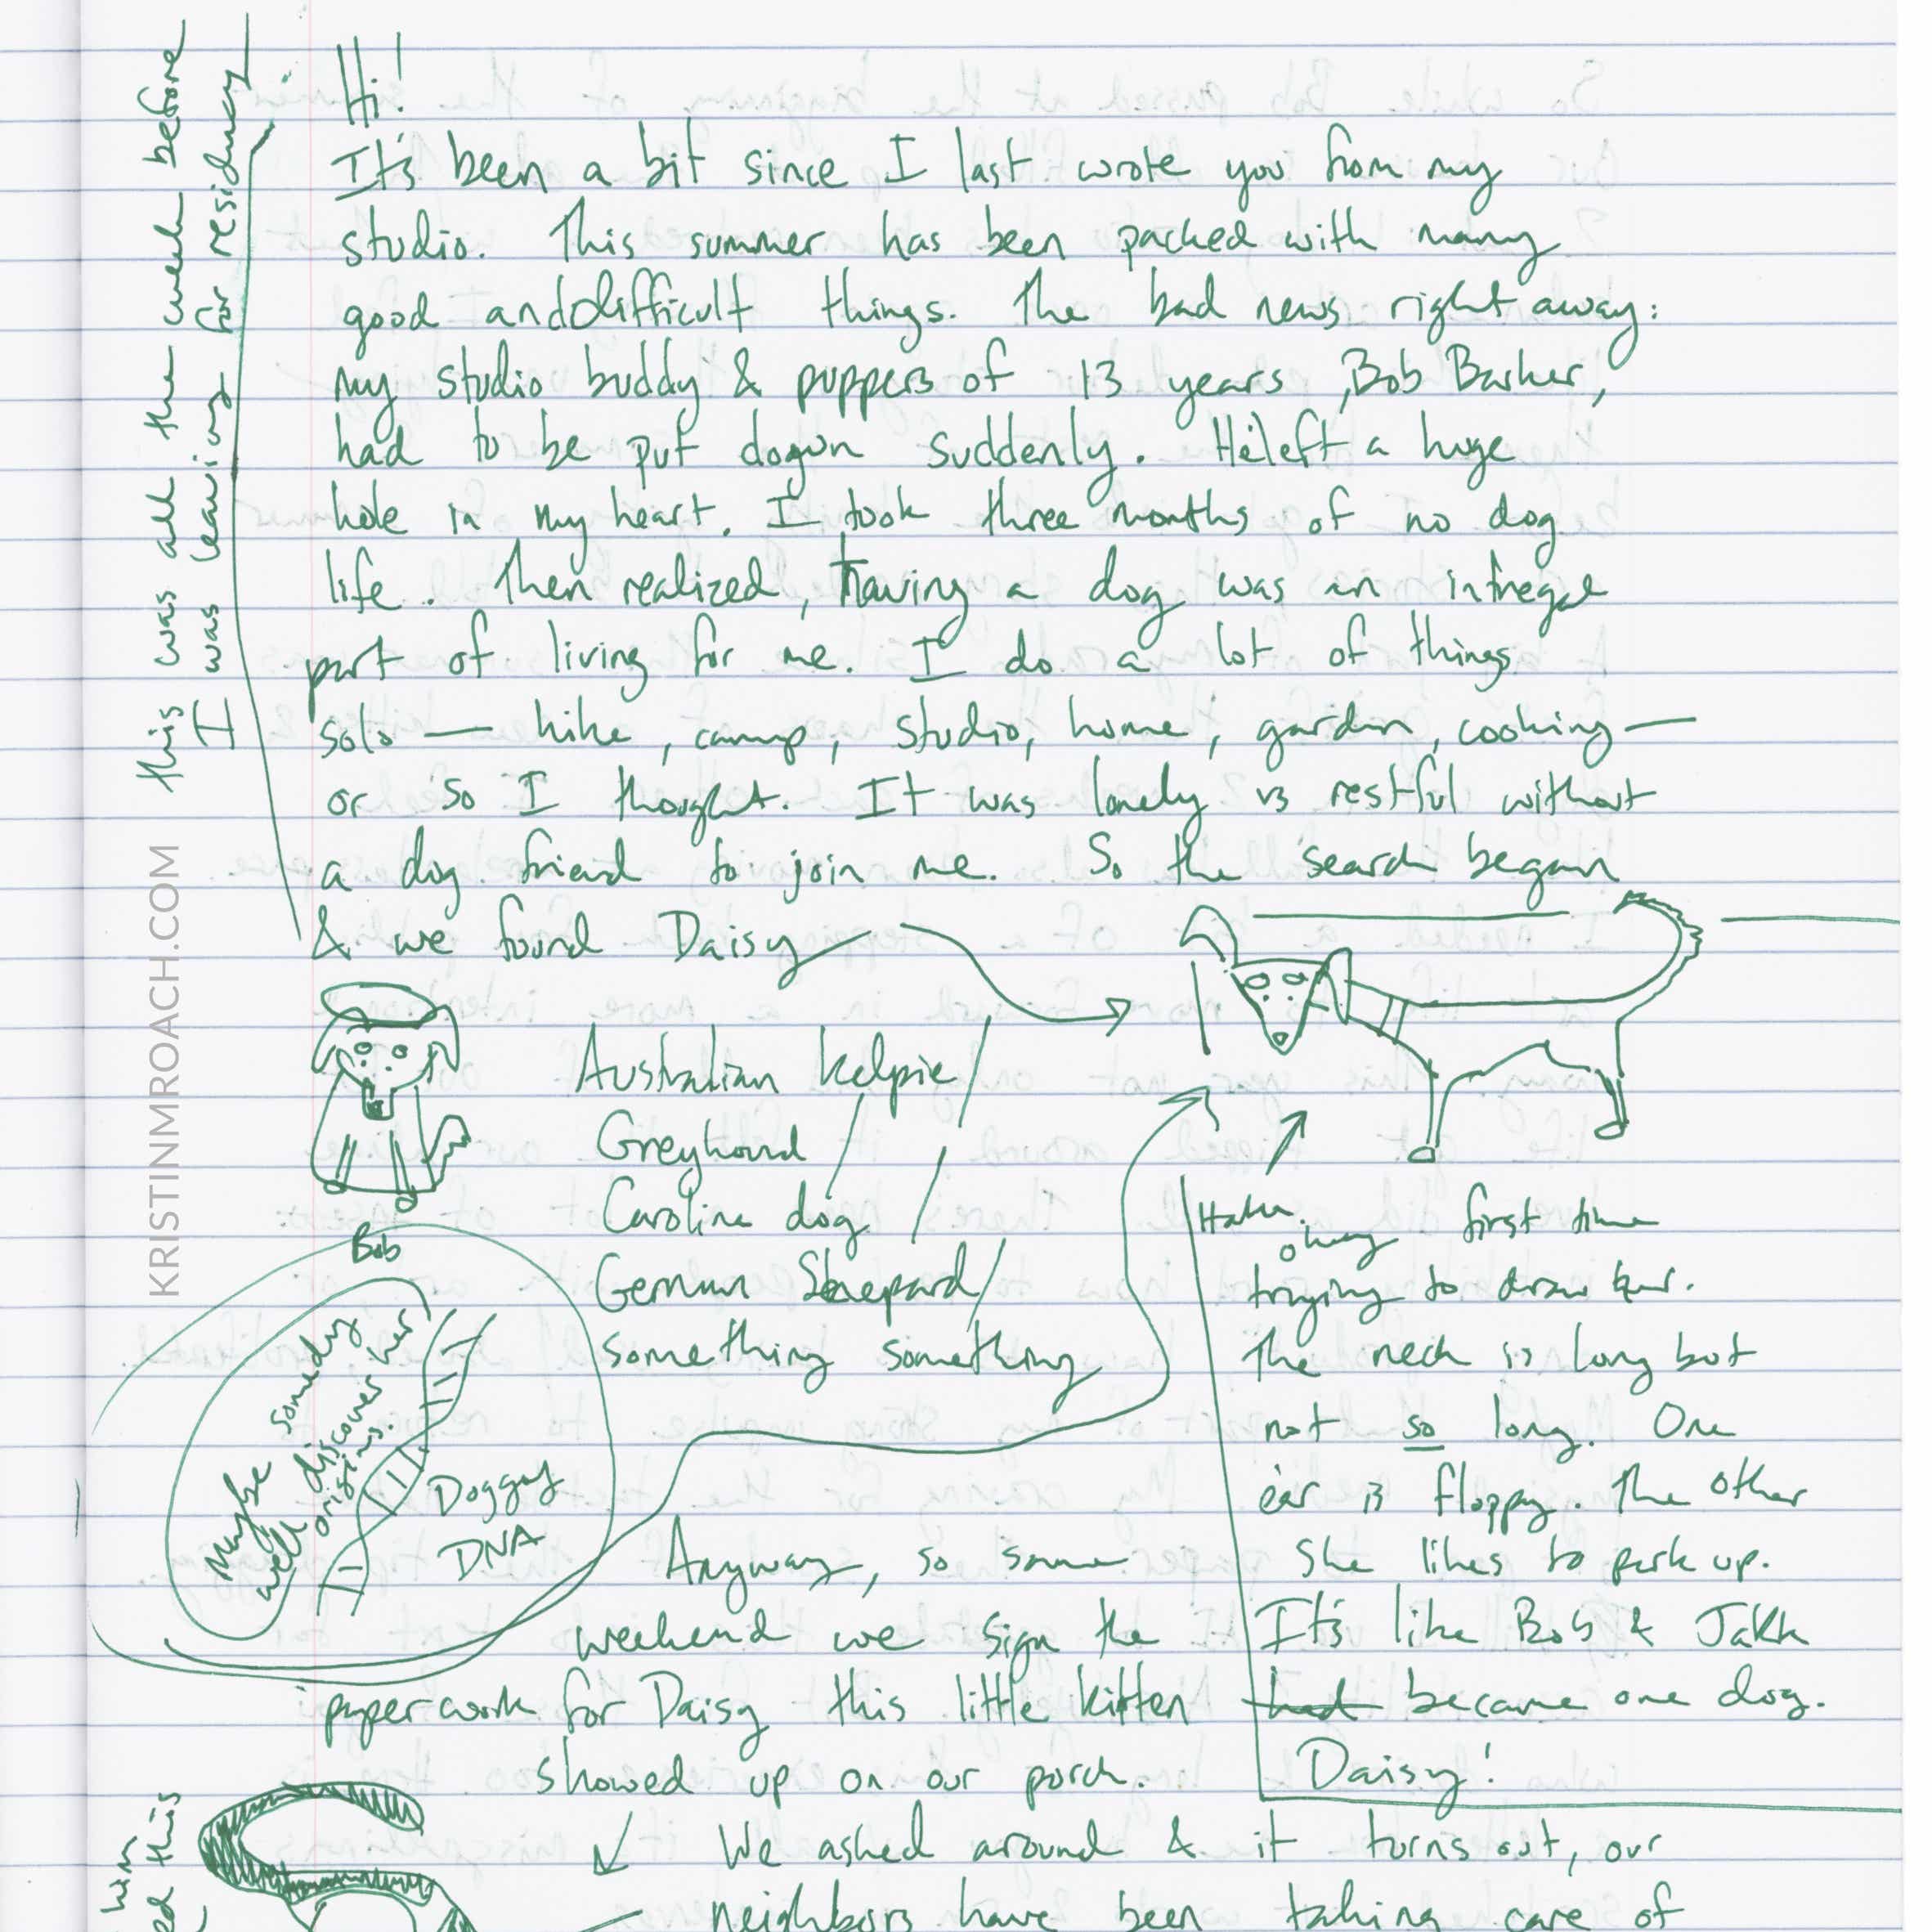 Hi!
It's been a bit since I last wrote you from my
studio. This summer has been packed with many
good and difficult things. The bad news right away:
my studio buddy & puppers of 13 years, Bob Barker,
had to be put dogwn suddenly. He left a huge
hole in my heart. I took three months of no dog
life. Then realized, having a dog was an intregal
part of living for me. I do a lot of things
solo — hike, camp, studio, home, garden, cooking —
or so I thought. It was lonely vs restful without
a dog friend to join me. So the search began
& we found Daisy
this was all the week before
I was leaving for residency
KRISTINMROACH.COM
Bob
Australian Kelpie/
Greyhound/
Carolina dog/
German Shepard/
something something
Maybe someday
we'll discover her
origins.
Doggy
DNA
Haha.
okay first time
trying to draw her.
The neck is long but
not so long. One
ear is floppy. The other
she likes to perk up.
It's like Bob & Jakk
had became one dog.
Daisy!
Anyway, so same
weekend we sign the
paperwork for Daisy this little kitten
showed up on our porch.
We asked around & it turns out, our
neighbors have been taking care of
him
this